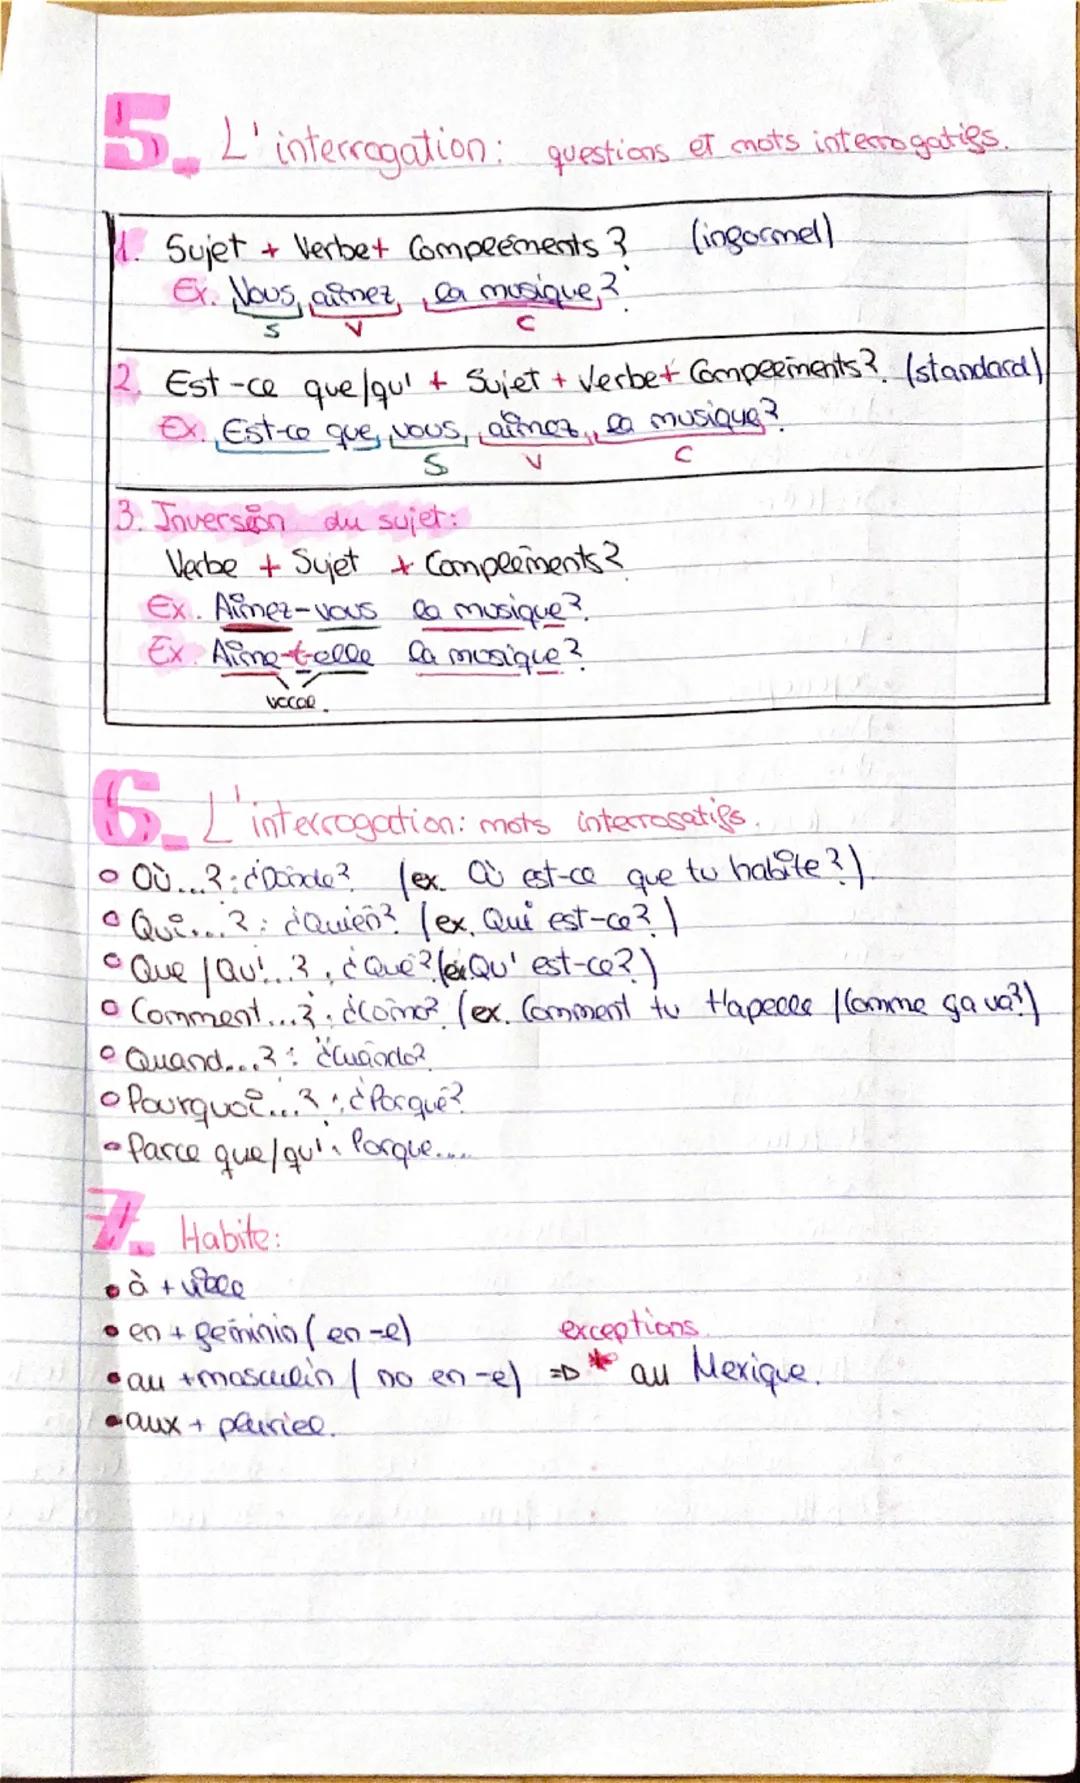 5. L'interrogation: questions et mots interrogatifs.
1. Sujet + Verbe + Compléments? (informel)
Ex. Vous aimez la musique?
S V C
2. Est-ce que/qu' + Sujet + Verbe + Compléments?. (standard)
Ex. Est-ce que vous aimez la musique?
S V C
3. Inversion du sujet:
Verbe + Sujet + Compléments?
Ex. Aimez-vous la musique?
Ex. Aime-t-elle la musique?
vocal.
6. L'interrogation: mots interrogatifs.
• Où...?: ¿Dónde? (ex. Où est-ce que tu habite?)
• Qui...?: ¿Quién? (ex. Qui est-ce?)
• Que/Qu'...?, ¿Qué? (ex Qu' est-ce?)
• Comment...?: ¿Cómo? (ex. Comment tu t'apelle / Comme ça va?)
• Quand...?: ¿Cuándo?
• Pourquoi...?: ¿Porqué?
• Parce que/qu': Porque....
7. Habite:
• à + ville
• en + féminin (en -e)
exceptions.
• au + masculin (no en -e) => * au Mexique.
• aux + pluriel.